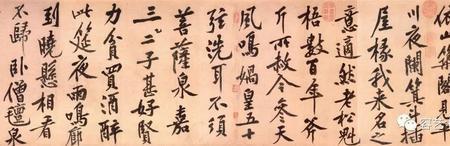 依山築閣見平
川夜闌箕斗插
屋椽我來名之
意適然老松魁
梧數百年斧
斤所赦今參天
風鳴媧皇五十
弦洗耳不須
菩薩泉嘉
二三子甚好賢
力貧買酒醉
此筵夜雨鳴廊
到曉懸相看
不歸臥僧氈泉